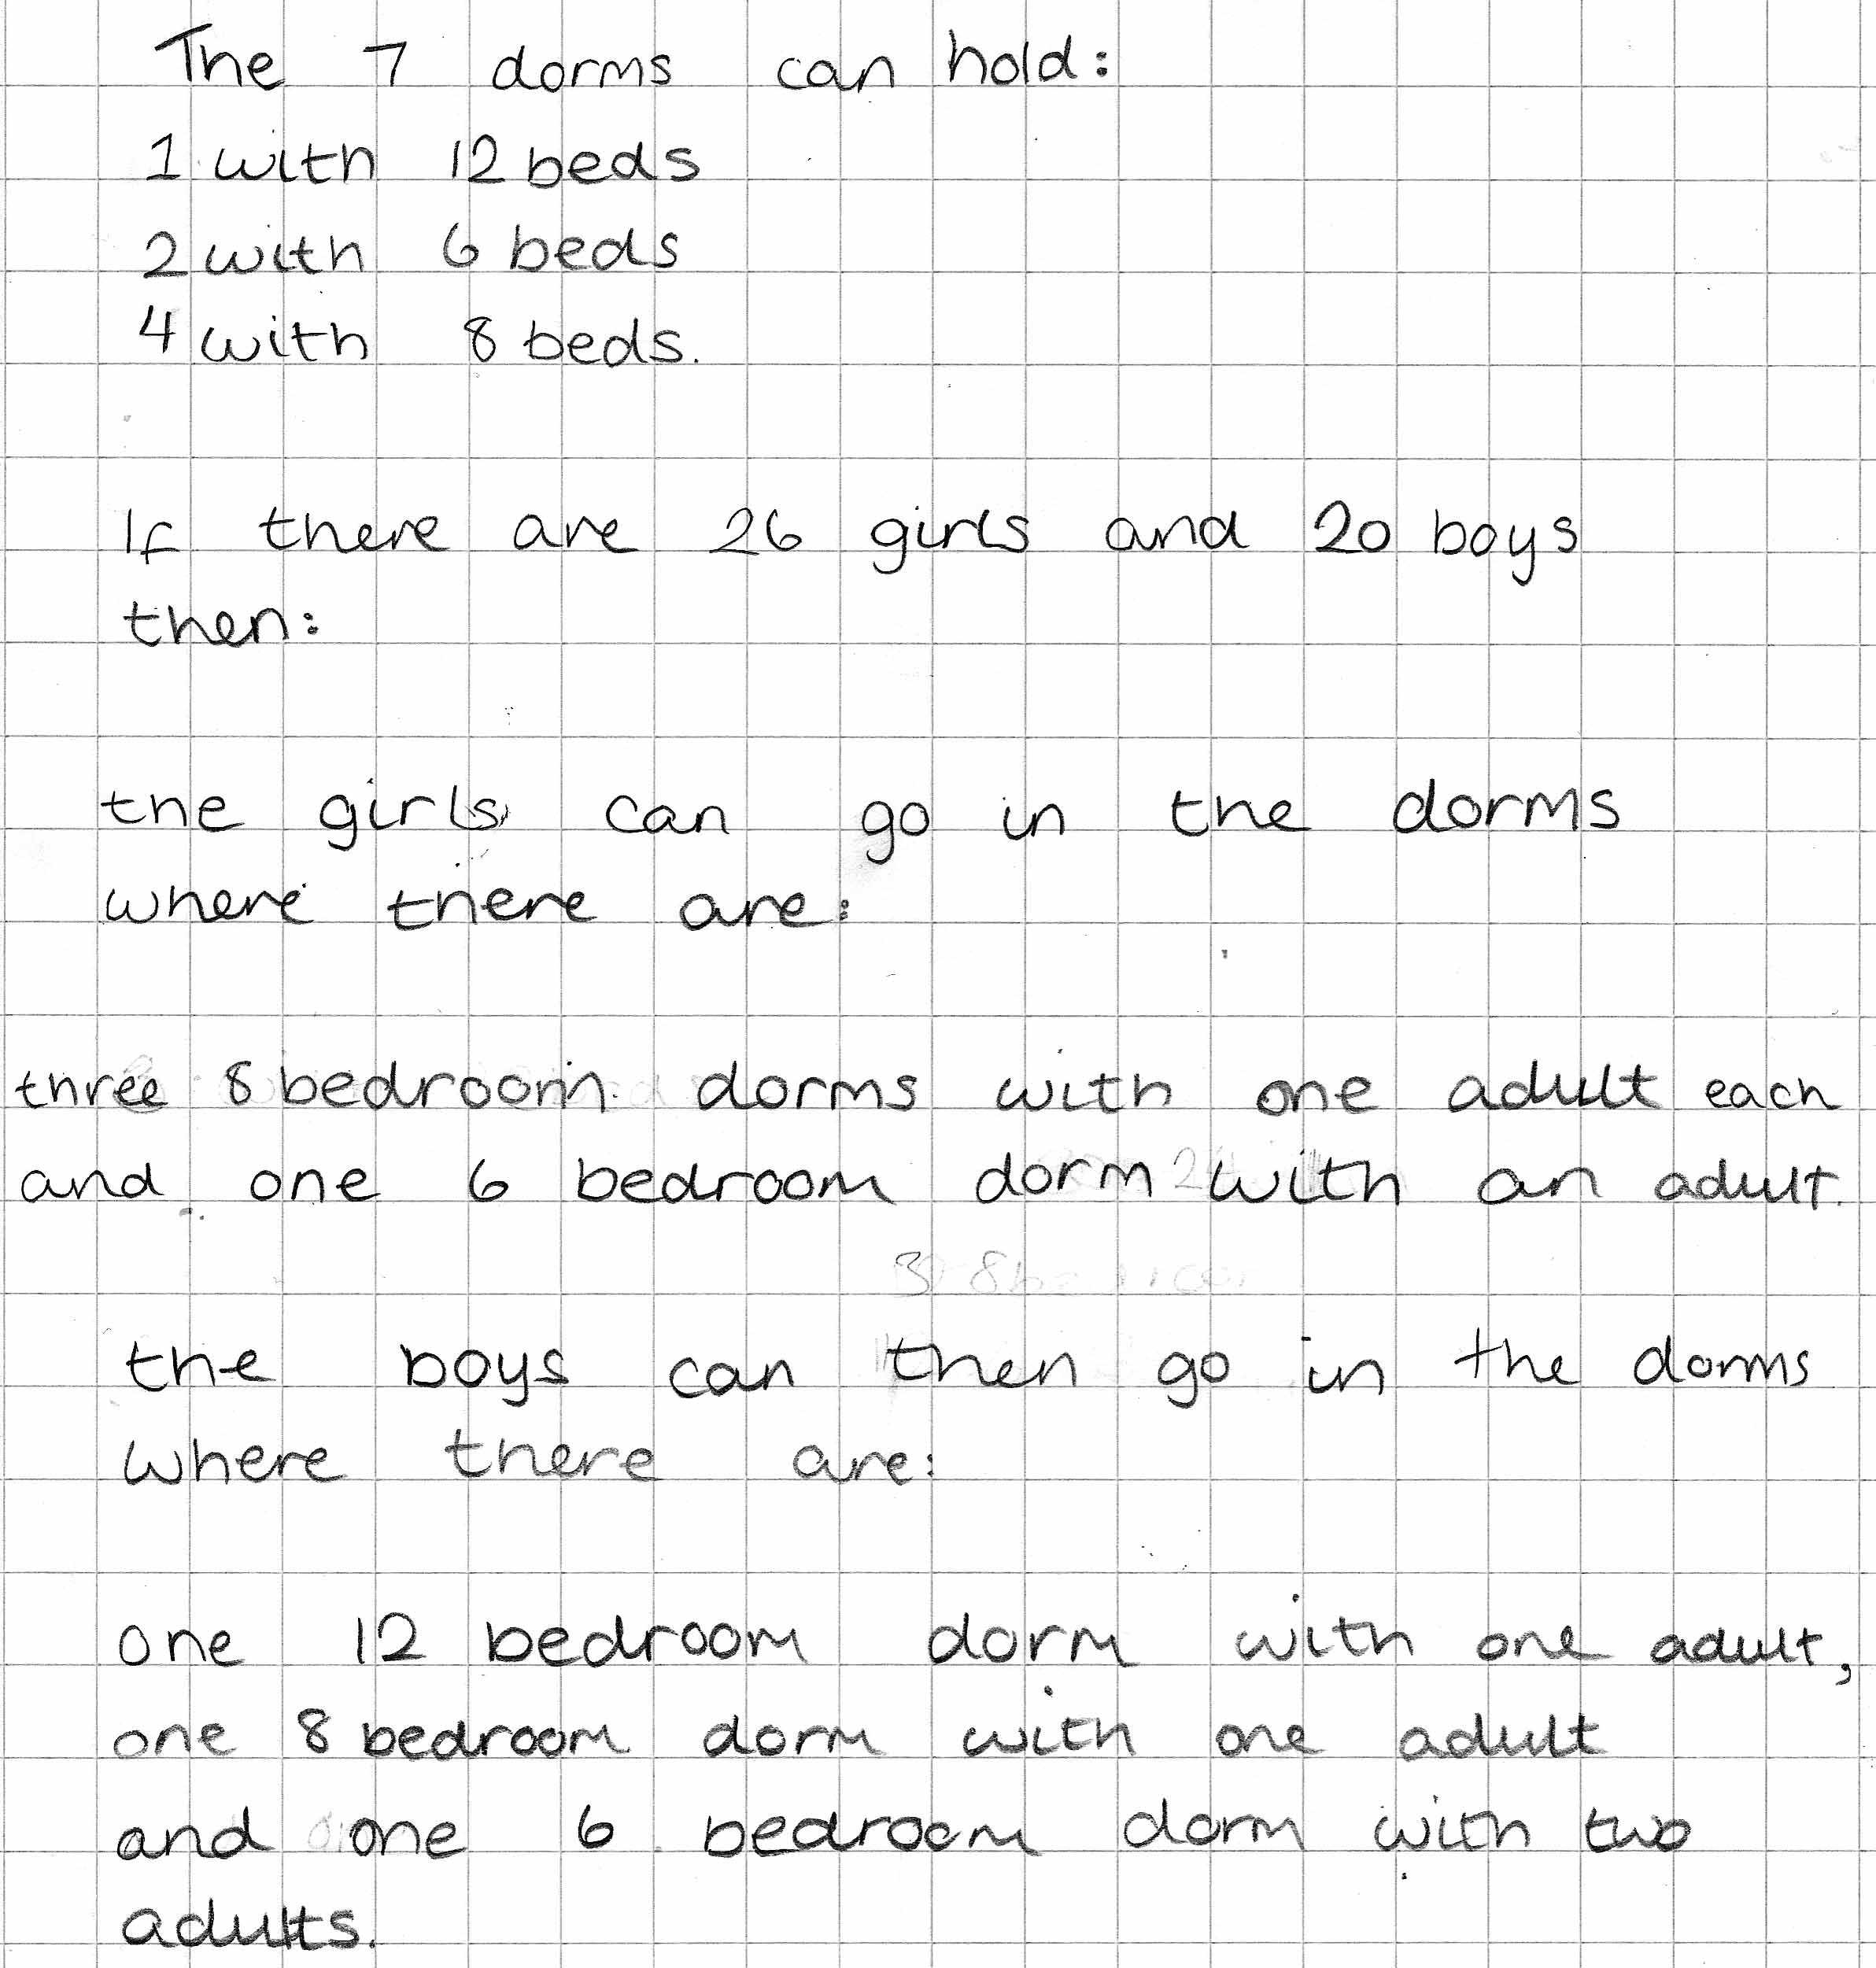 The 7 dorms can hold:
1 with 12 beds
2 with 6 beds
4 with 8 beds.
If there are 26 girls and 20 boys
then:
the girls can go in the dorms
where there are:
three 8 bedroom dorms with one adult each
and one 6 bedroom dorm with an adult.
3 8
the boys can then go in the dorms
where there are:
one 12 bedroom dorm with one adult,
one 8 bedroom dorm with one adult
and one 6 bedroom dorm with two
adults.